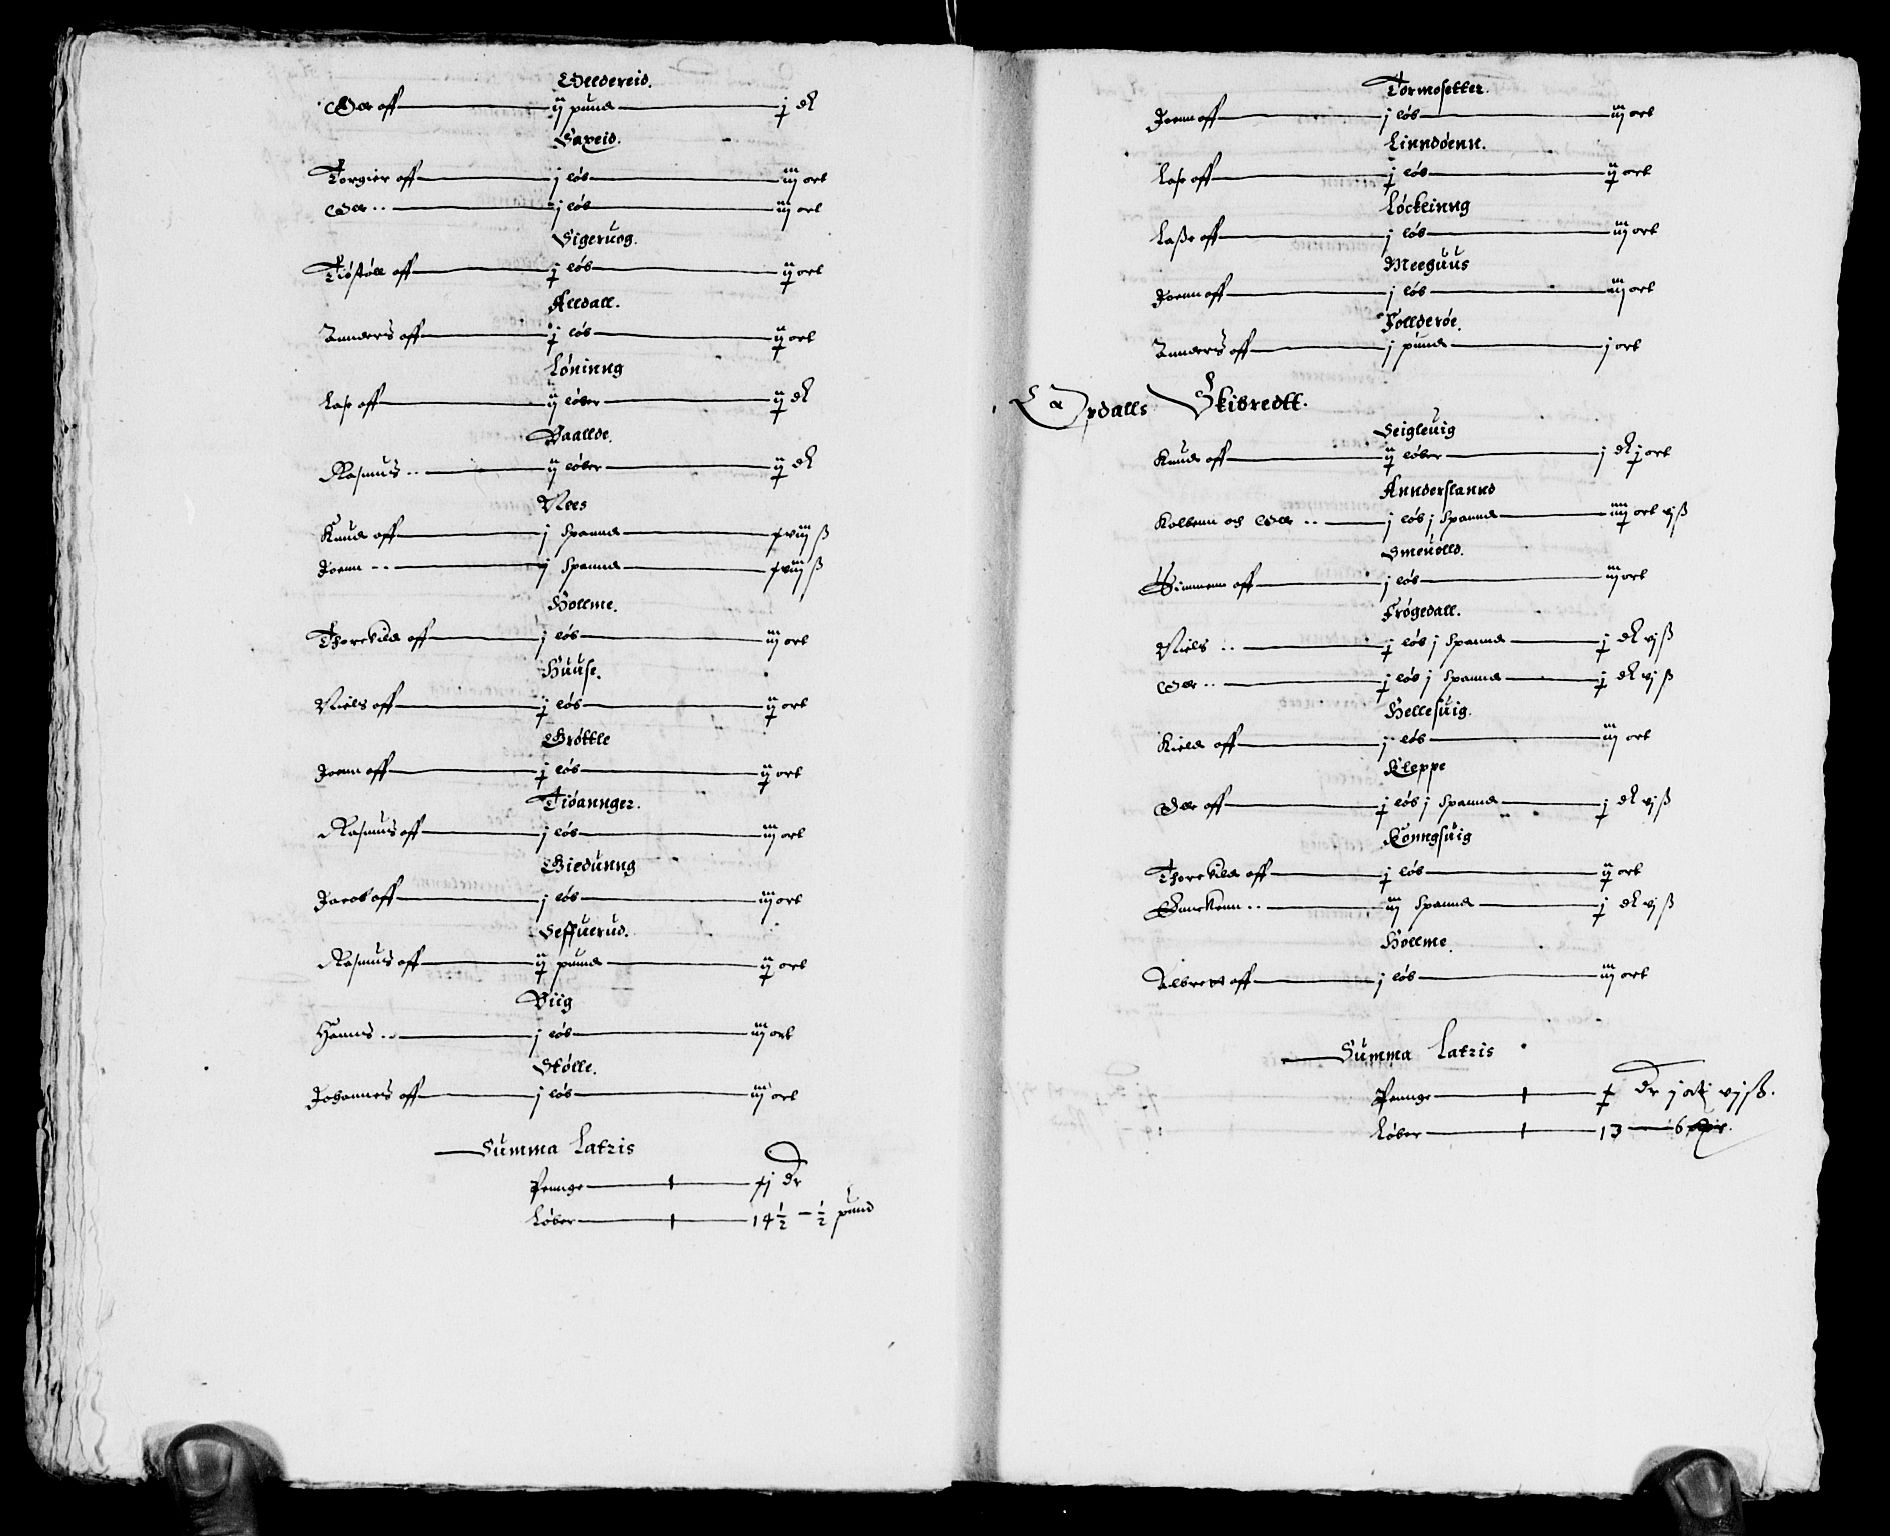 Oeldereid.
Oele off — ij pund — j dr
Saxeid.
Torgier off — j løb — iij ort
Oele .. — j løb — iij ort
Sigeruog.
Tiøstøll off — j løb — ij ort
Alldall.
Anders off — j løb — ij ort
Løninng
Lasse off — ij løber — ij dr
Vaallde.
Rasmus .. — ij løber — ij dr
Nees
Knud off — j spannd — xviij ß
Joenn .. — j spannd — xviij ß
Hollme.
Thorekild off — j løb — iij ort
Huuse.
Niels off — j løb — ij ort
Grøttle
Joenn off — j løb — ij ort
Tiøannger.
Rasmus off — j løb — iij ort
Giedunng
Jacob off — j løb — iij ort
Seffuerud.
Rasmus off — ij pund — ij ort
Viig
Hanns .. — j løb — iij ort
Stølle.
Johannes off — j løb — iij ort
Summa Latris
Pennge — xj Dr
Løber — 14 1/2 — 1/2 pund
Tormosetter.
Joenn off — j løb — iij ort
Linndøenn.
Lasse off — j løb — ij ort
Løckeinng
Lasse off — j løb — iij ort
Meehuus
Joenn off — j løb — iij ort
Follderøe.
Anders off — j pund — j ort
Opdalls Skibredtt.
Seigleuig
Knud off — ij løber — j dr j ort
Annderslannd
Kolbenn och Oele .. — j løb j spannd — iiij ort vj ß
Smeuolld.
Simmenn off — j løb — iij ort
Frøgedall.
Niels .. — j løb j spannd — j dr vj ß
Oele .. — j løb j spannd — j dr vj ß
Hellesuig.
Kield off — j løb — iij ort
Kleppe
Oele off — j løb j spannd — j dr vj ß
Konngsuig
Thorekild off — j løb — ij ort
.. — iij spannd — j dr vj ß
Hollme
Albrett off — j løb — iij ort
Summa Latris
Pennge — x Dr j ort vj ß.
Løber — 13 — 6